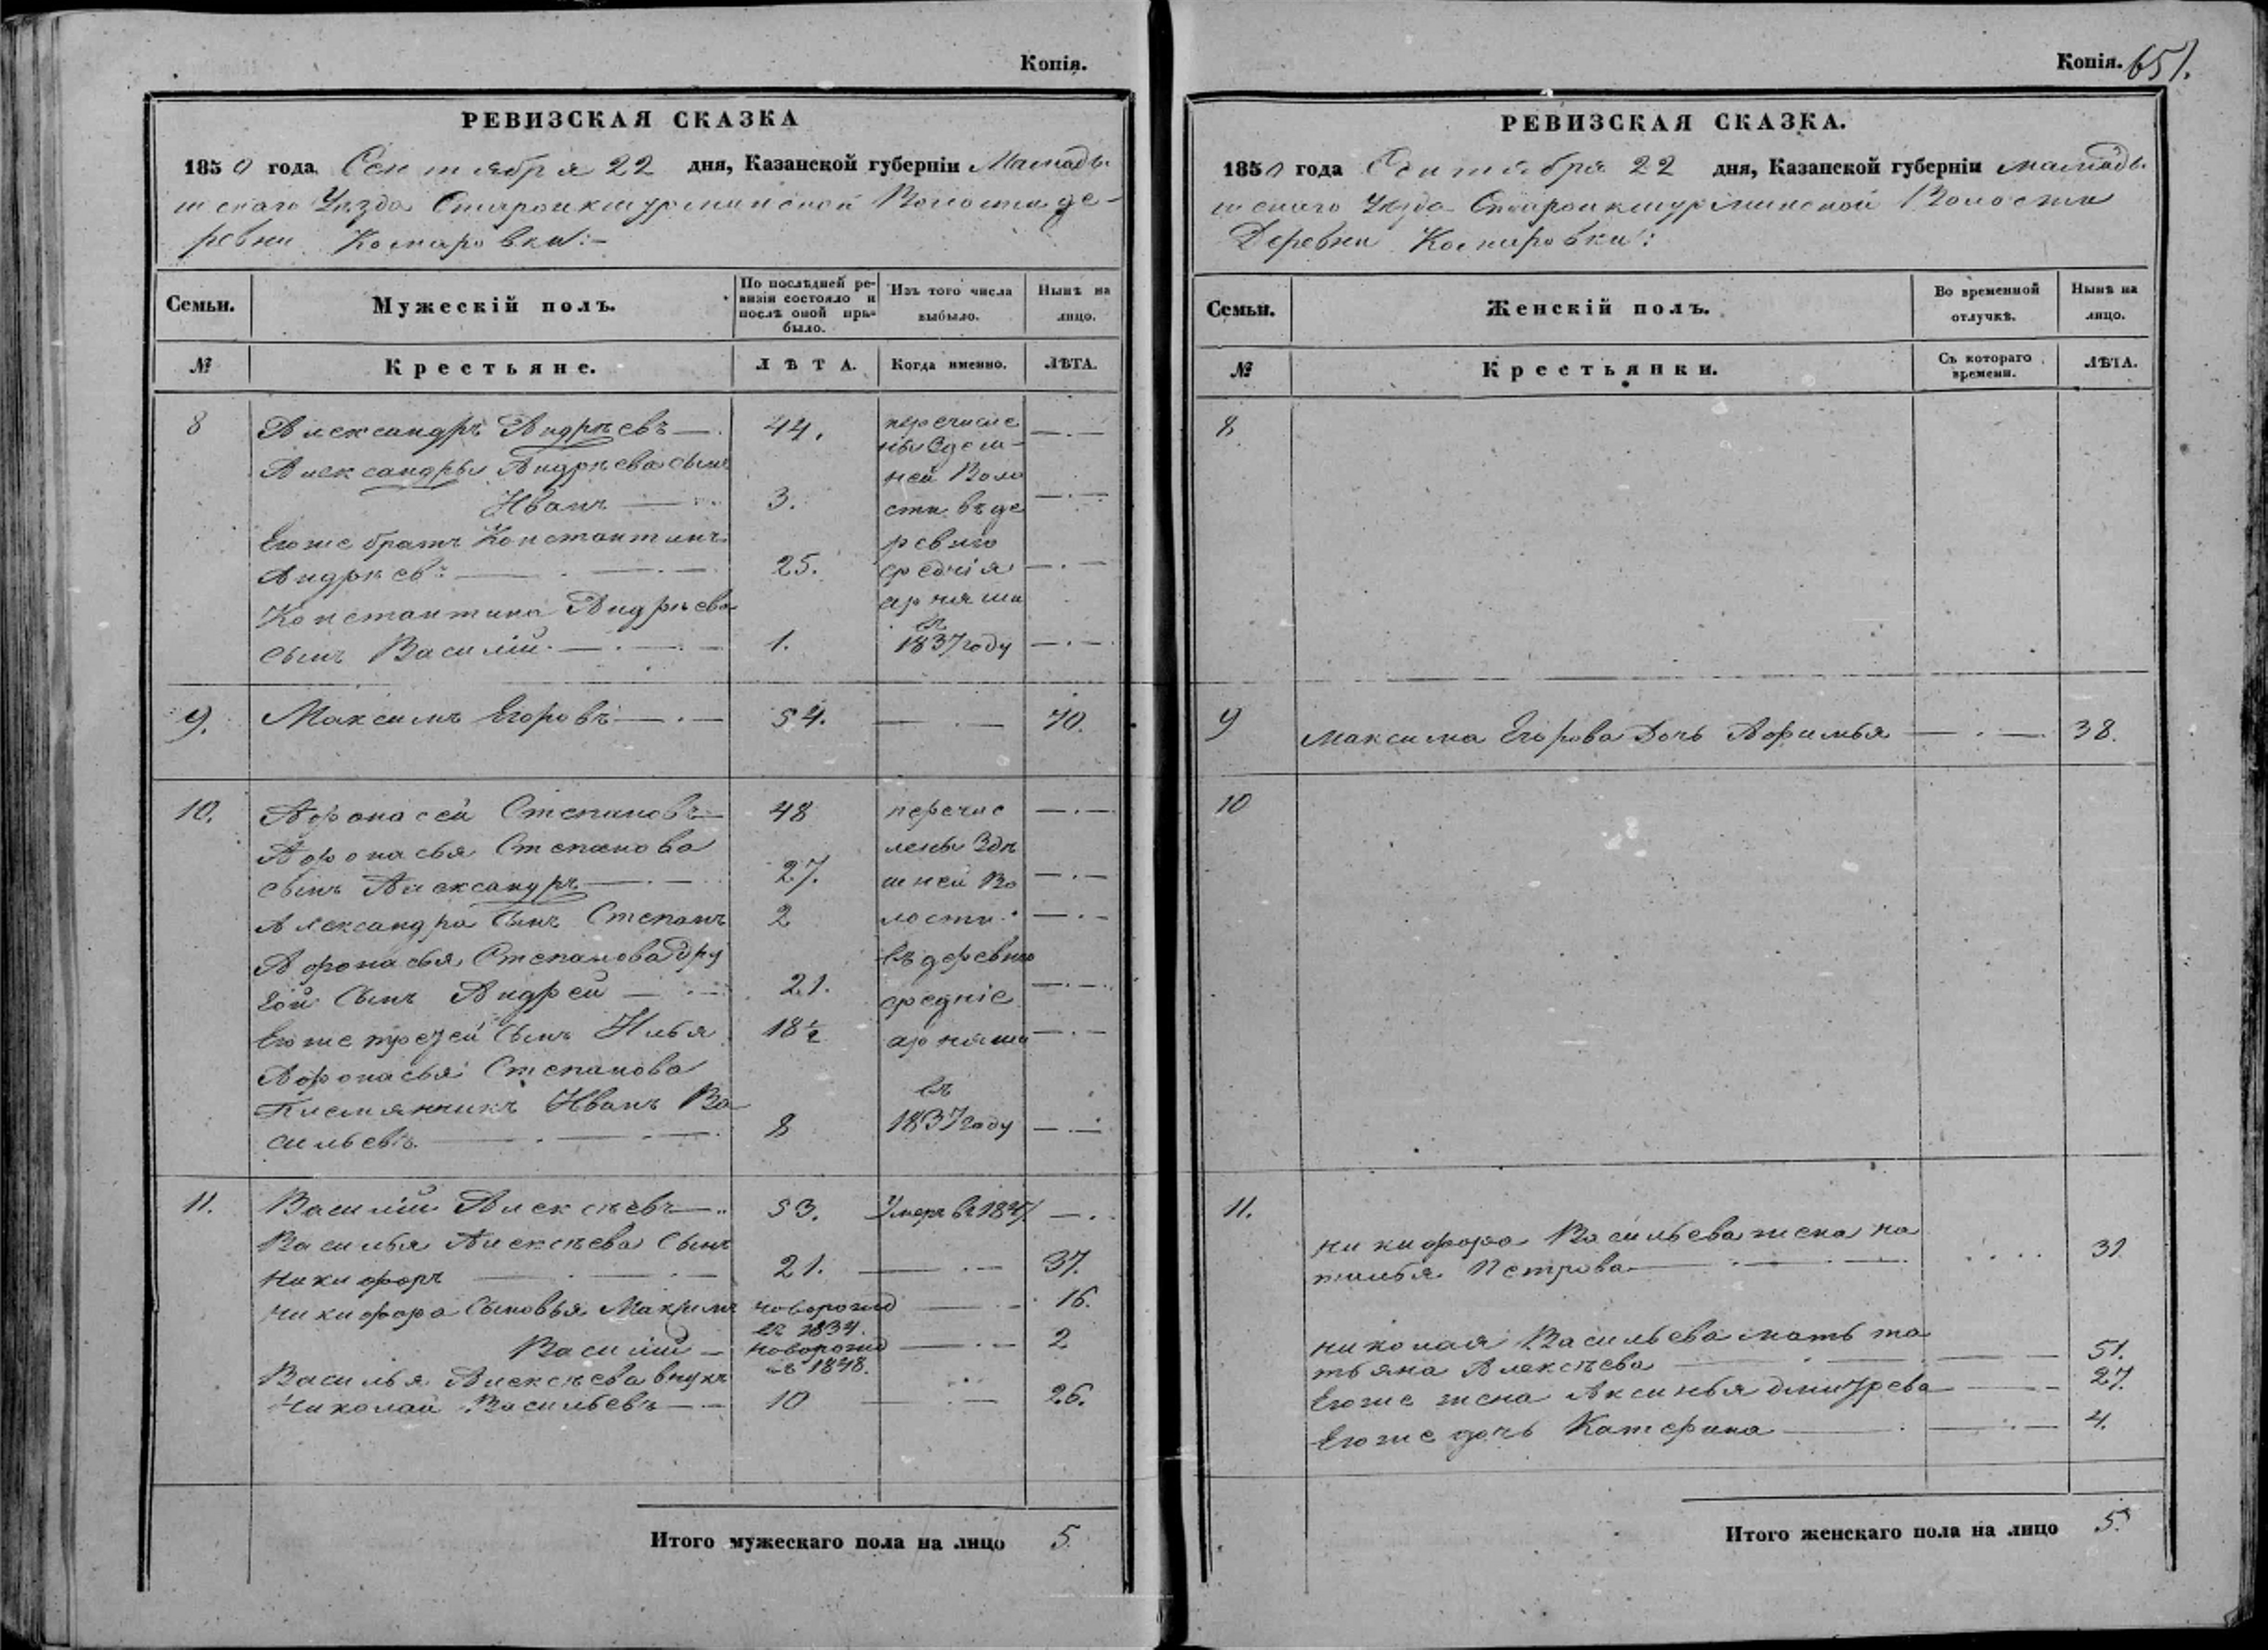 Копія.
РЕВИЗСКАЯ СКАЗКА
1850 года Сентября 22 дня, Казанской губерніи Мамады
шскаго Уѣзда Староикшурминской Волости де-
ревни Комаровки:-
Семьи. Мужескій полъ. По послѣдней ре-визіи состояло и послѣ оной при-было. Изъ того числа выбыло. Нынѣ на лицо.
№ Крестьяне. ЛѢТА. Когда именно. ЛѢТА.
8 Александръ Андрѣевъ 44. перечисле
ны Здеш-
Александры Андрѣева сынъ ней Воло
Иванъ 3. сти въ де
Егоже братъ Константинъ ревню
Андрѣевъ 25. средкія
Константина Андрѣева арняши
въ
сынъ Василій 1. 1837 году
9. Максимъ Егоровъ 54. 70.
10. Афонасей Степановъ 48 перечис
Афонасья Степанова лены Здѣ
сынъ Александръ 27. шней Во
Александра Сынъ Степанъ 2 лости
Афонасья Степанова дру въ деревню
гой Сынъ Андрей 21. средніе
Егоже третей Сынъ Илья 18½ арняши
Афонасья Степанова
въ
Племянникъ Иванъ Ва
сильевъ 8 1837 году
11. Василій Алексѣевъ 53. Умеръ въ
Василья Алексѣева Сынъ
Никифоръ 21. 37.
Никифора Сыновья Максимъ новорожд 16.
въ 1834.
Василій новорожд 2
въ 1848.
Василья Алексѣева внукъ
Николай Васильевъ 10 26.
Итого мужескаго пола на лицо 5
Копія. 651.
РЕВИЗСКАЯ СКАЗКА.
1850 года Сентября 22 дня, Казанской губерніи Мамады
шскаго Уѣзда Староикшурминской Волости
Деревни Комаровки:
Семьи. Женскій полъ. Во временной отлучкѣ. Нынѣ на лицо.
№ Крестьянки. Съ котораго времени. ЛѢТА.
8.
9 Максима Егорова Дочь Афимья 38.
10
11.
Никифора Васильева жена На
талья Петрова 31
Николая Васильева мать Та
тьяна Алексѣева 51.
Егоже жена Аксинья Дмитрева 27.
Егоже дочь Катерина 4.
Итого женскаго пола на лицо 5.